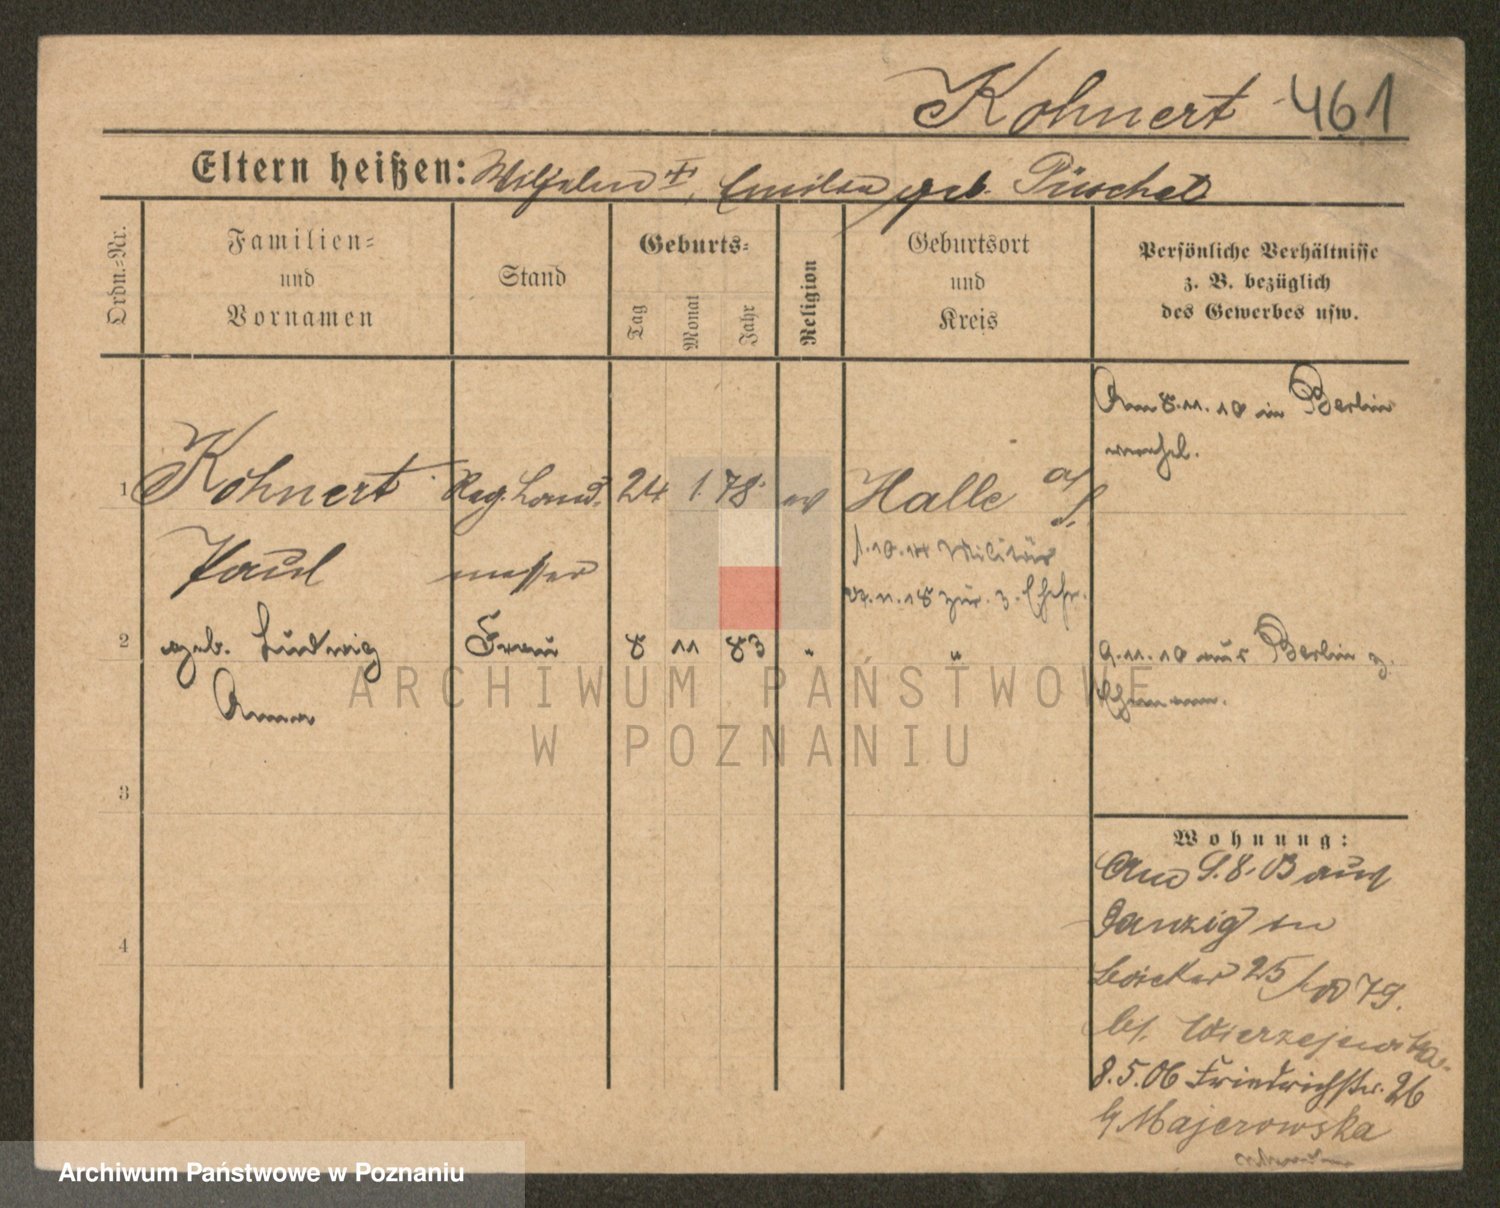 Kohnert 461
Eltern heißen: Wilhelm †, Emilie geb. Püschel
Ordn.=Nr.
Familien=
und
Vornamen
Stand
Geburts=
Tag
Monat
Jahr
Religion
Geburtsort
und
Kreis
Persönliche Verhältnisse
z. B. bezüglich
des Gewerbes usw.
Am 8.11.10 in Berlin
1 Kohnert Reg. Land 24 1. 78 ev Halle a/S.
Paul messer
1.10.14 Militär
18 zur. z. Ehefr.
2 geb. Ludwig Frau 8 11 83 " "
Anna
9.11.10 aus Berlin z.
Ehemann.
3
4
Wohnung:
Am 9.8.03 aus
Danzig in
Bäcker 25 79.
b/.
8.5.06 Friedrichstr. 26
b/ Majerowska
ARCHIWUM PAŃSTWOWE
W POZNANIU
Archiwum Państwowe w Poznaniu